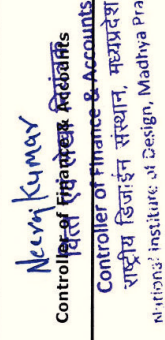 Neeraj Kumar
Controller of Finance & Accounts
वित्त एवं लेखा नियंत्रक
Controller of Finance & Accounts
राष्ट्रीय डिजाईन संस्थान, मध्यप्रदेश
National Institute of Design, Madhya Pra